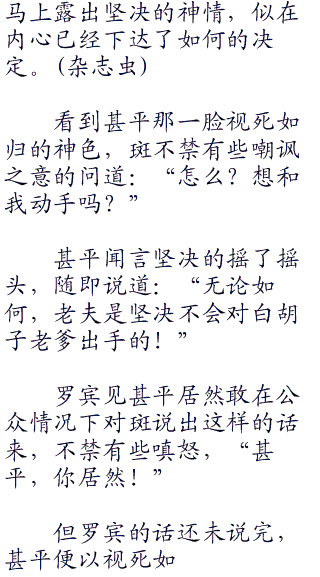 马上露出坚决的神情，似在
内心已经下达了如何的决
定。(杂志虫)
看到甚平那一脸视死如
归的神色，斑不禁有些嘲讽
之意的问道：“怎么？想和
我动手吗？”
甚平闻言坚决的摇了摇
头，随即说道：“无论如
何，老夫是坚决不会对白胡
子老爹出手的！”
罗宾见甚平居然敢在公
众情况下对斑说出这样的话
来，不禁有些嗔怒，“甚
平，你居然！”
但罗宾的话还未说完，
甚平便以视死如